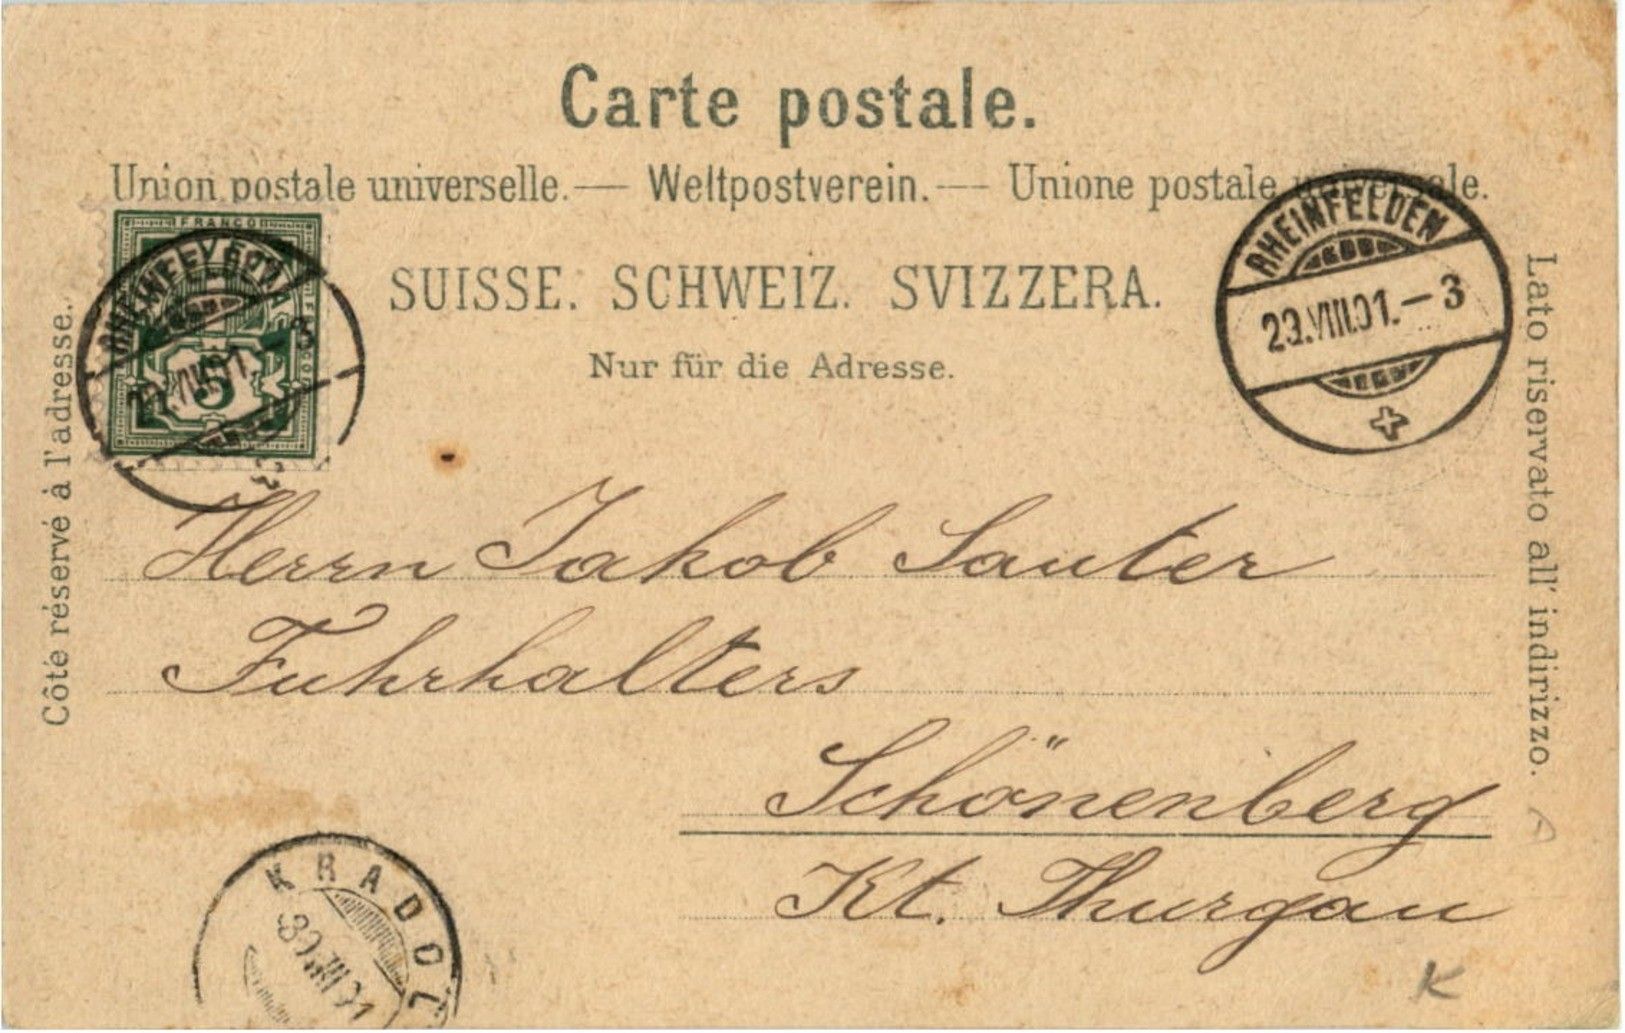 Carte postale.
Union postale universelle. — Weltpostverein. — Unione postale universale.
SUISSE. SCHWEIZ. SVIZZERA.
Nur für die Adresse.
Côté réservé à l'adresse.
Lato riservato all' indirizzo.
FRANCO
5
RHEINFELDEN
VIII.01. - 3
RHEINFELDEN
VIII.01. - 3
Herrn Jakob Sauter
Fuhrhalters
Schönenberg
Kt. Thurgau
KRADOL
VIII
K